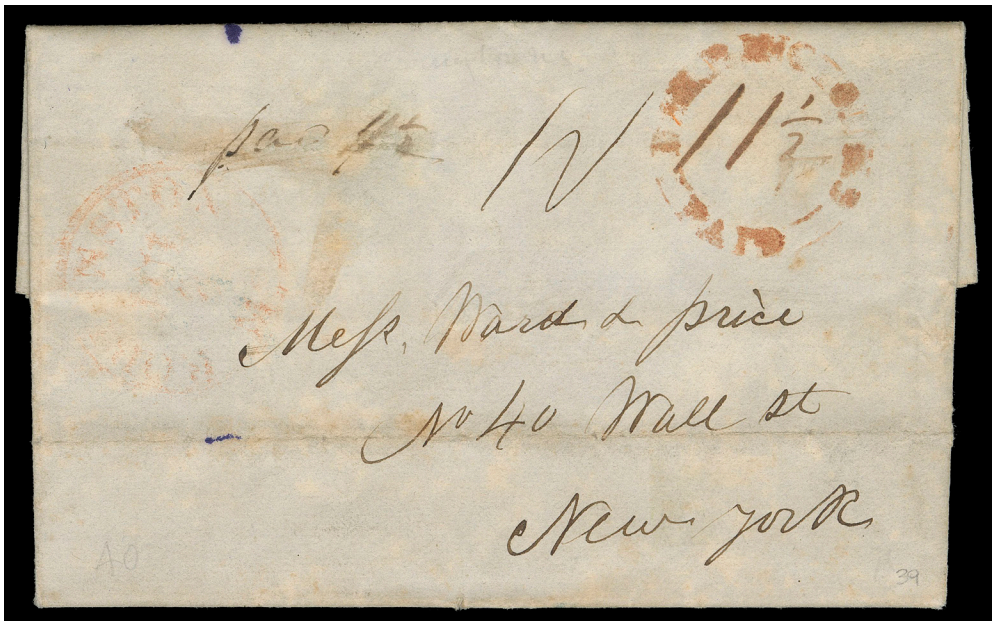 paid 4½
11½
PAID
Meſs. Ward & price
No 40 Wall st
New york
40
39